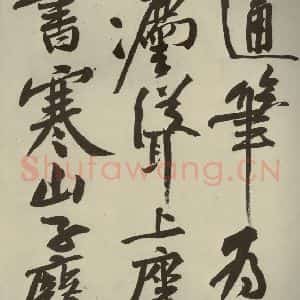 通筆為
灋聳上座
書寒山子龐
Shufawang.CN